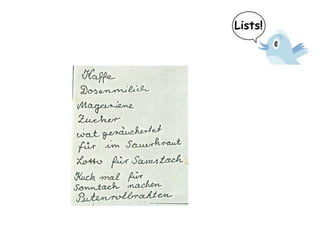 Lists!
Kaffe
Dosenmilich
Magariene
Zucker
wat geräuchertet
für im Sauerkraut
Lotto für Samstach
Kuck mal für
Sonntach nachen
Putenrollbrahten